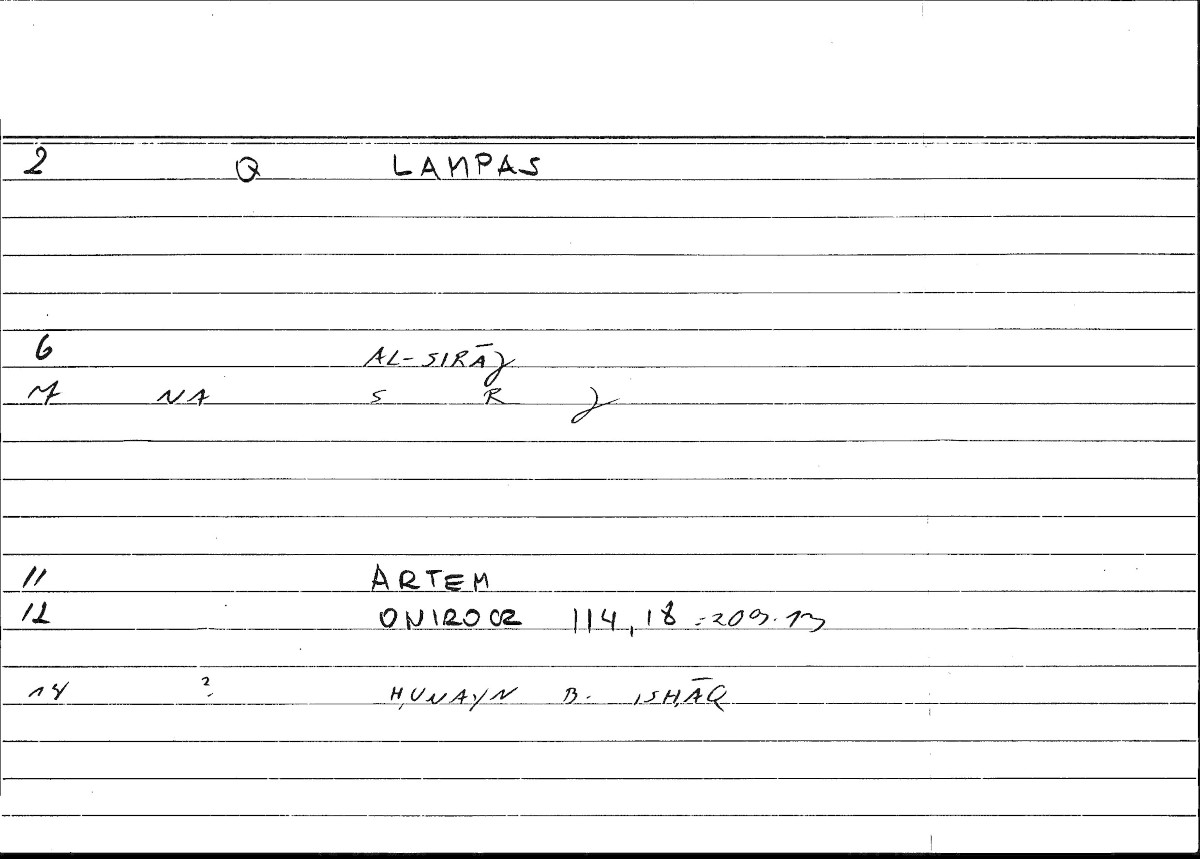 2 Q LAMPAS
6 AL-SIRĀJ
7 NA S R J
11 ARTEM
12 ONIROCR 114,18 = 209.13
14 ? ḤUNAYN B. ISḤĀQ